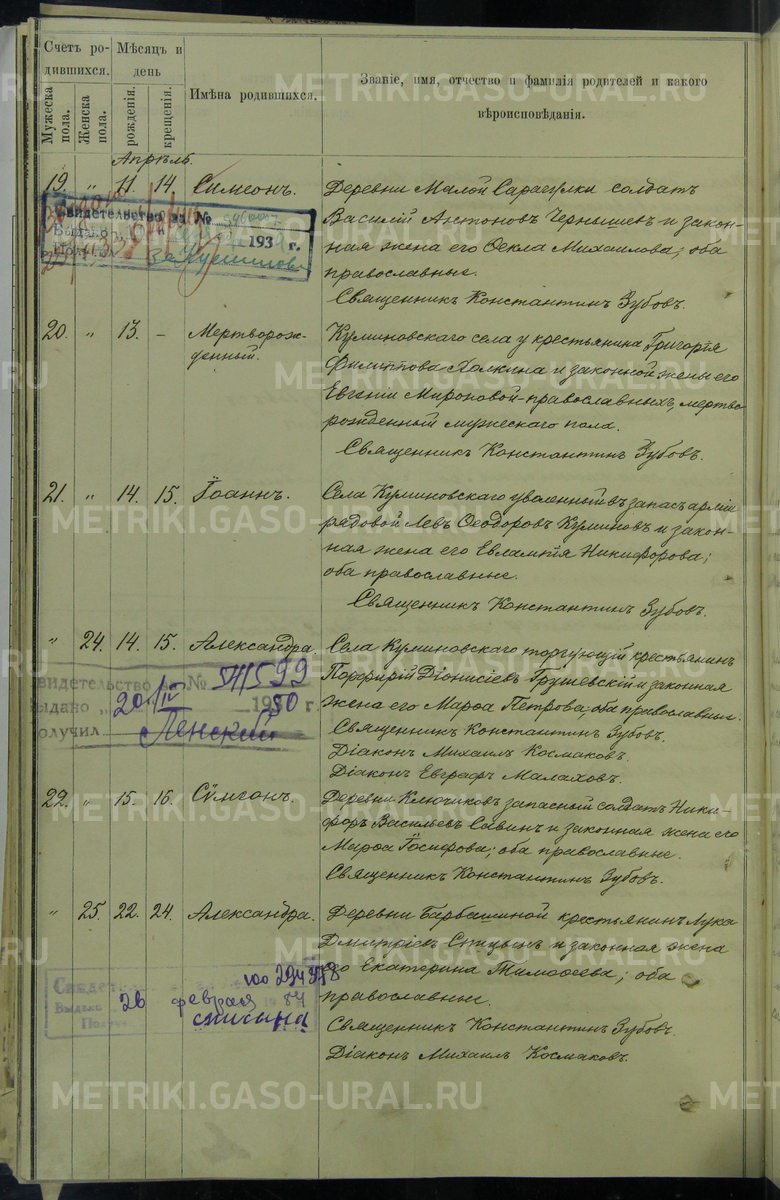 Счетъ ро-
дившихся.
Мѣсяцъ и
день
Имѣна родившихся.
Званіе, имя, отчество и фамилія родителей и какого
вѣроисповѣданія.
Мужеска пола.
Женска пола.
рожденія.
крещенія.
METRIKI.GASO-URAL.RU
Апрѣль.
19. " 11. 14. Симеонъ.
Деревни Малой Сарагулки солдатъ
Василій Антоновъ Чернышевъ и закон-
ная жена его Ѳекла Михаилова; оба
православные.
Священникъ Константинъ Зубовъ.
Свидетельство за №
Выдано
193 г.
20. " 13. - Мертворож-
денный.
Кулиновскаго села у крестьянина Григорія
Филиппова Холкина и законной жены его
Евгеніи Мироновой православныхъ, мертво
рожденный мужескаго пола.
Священникъ Константинъ Зубовъ.
21. " 14. 15. Іоаннъ.
Села Кулиновскаго уволенной въ запасъ арміи
рядовой Левъ Ѳеодоровъ Кулиновъ и закон-
ная жена его Евлампія Никифорова;
оба православные.
Священникъ Константинъ Зубовъ.
" 24. 14. 15. Александра.
Села Кулиновскаго торгующій крестьянинъ
Порфирій Діонисіевъ Грушевскій и законная
жена его Марѳа Петрова; оба православные.
Священникъ Константинъ Зубовъ.
Діаконъ Михаилъ Космаковъ.
Діаконъ Евграфъ Малаховъ.
видетельство за №
ыдано „ 20/IV 1950 г.
олучил Ленский
22. " 15. 16. Сѵмеонъ.
Деревни Ключиковъ запасный солдатъ Ники-
форъ Васильевъ Савинъ и законная жена его
Марѳа Іосифова; оба православные.
Священникъ Константинъ Зубовъ.
" 25. 22. 24. Александра.
Деревни Барбашиной крестьянинъ Лука
Дмитріевъ и законная жена
его Екатерина Тимоѳеева; оба
православные.
Священникъ Константинъ Зубовъ.
Діаконъ Михаилъ Космаковъ.
Свидет
Выдано 26 февраля